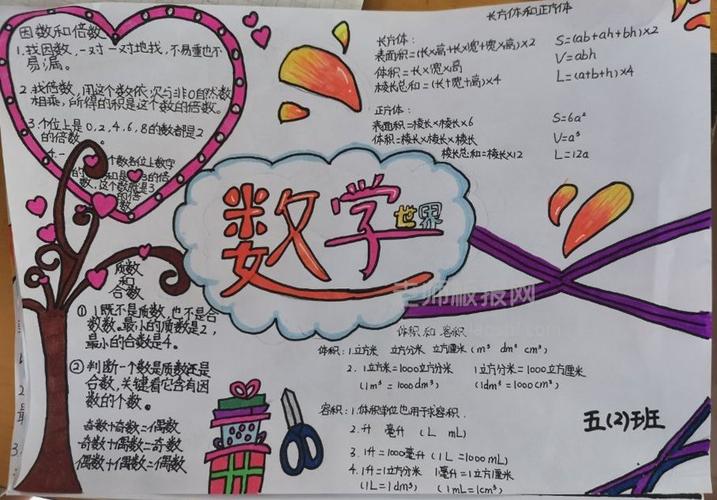 因数和倍数
1.找因数,一对一对地找,不易重也不
易漏。
2.找倍数,用这个数依次与非0自然数
相乘,所得的积是这个数的倍数。
3.个位上是0,2,4,6,8的数都是2
的倍数。
4.一个数各位上数字
的和是3的倍
数,这个数就是3
的倍
数
质数
和
合数
①1既不是质数,也不是合
数。最小的质数是2,
最小的合数是4。
②判断一个数是质数还是
合数,关键看它含有因
数的个数。
奇数+奇数=偶数
奇数+偶数=奇数
偶数+偶数=偶数
数学世界
长方体和正方体
长方体:
表面积=(长×高+长×宽+宽×高)×2 S=(ab+ah+bh)×2
体积=长×宽×高 V=abh
棱长总和=(长+宽+高)×4 L=(a+b+h)×4
正方体:
表面积=棱长×棱长×6 S=6a²
体积=棱长×棱长×棱长 V=a³
棱长总和=棱长×12 L=12a
老师板报网
体积和容积
体积:1.立方米 立方分米 立方厘米(m³ dm³ cm³)
2.1立方米=1000立方分米 1立方分米=1000立方厘米
(1m³=1000dm³) (1dm³=1000cm³)
容积:1.体积单位也用于求容积.
2.升 毫升 (L mL)
3.1升=1000毫升(1L=1000mL)
4.1升=1立方分米 1毫升=1立方厘米
(1L=1dm³) (1mL=1cm³)
五(2)班